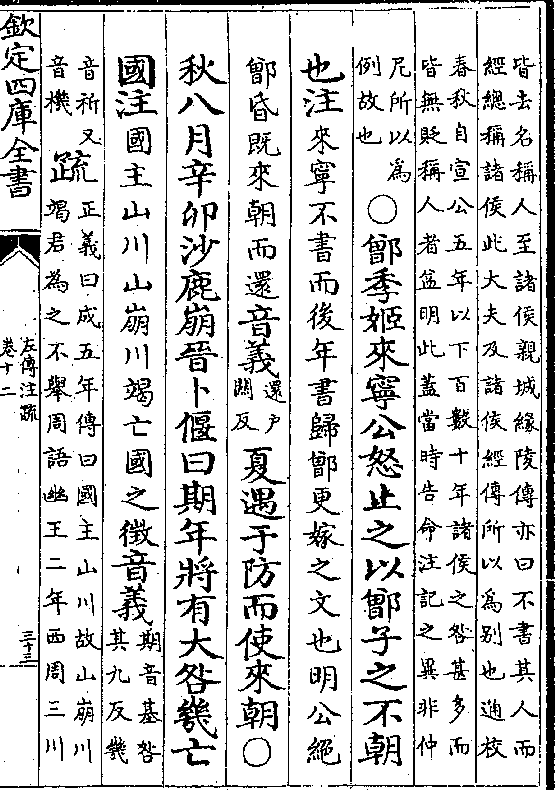 皆去名稱人至諸侯親城緣陵傳亦曰不書其人而
經總稱諸侯此大夫及諸侯經傳所以為別也通校
春秋自宣公五年以下百數十年諸侯之咎甚多而
皆無貶稱人者益明此蓋當時告命注記之異非仲
尼所以為
例故也
○鄫季姬來寧公怒止之以鄫子之不朝
也注來寧不書而後年書歸鄫更嫁之文也明公絕
鄫昏既來朝而還音義
還户
闗反
夏遇于防而使來朝○
秋八月辛卯沙鹿崩晉卜偃曰期年將有大咎幾亡
國注國主山川山崩川竭亡國之徵音義
期音基咎
其九反幾
音祈又
音機
疏
正義曰成五年傳曰國主山川故山崩川
竭君為之不舉周語幽王二年西周三川
欽定四庫全書
左傳注疏
卷十二
三十三